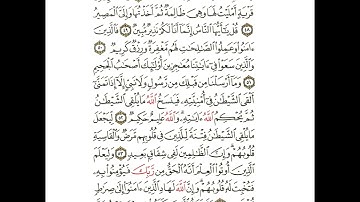 قَرْيَةٍ أَمْلَيْتُ لَهَا وَهِيَ ظَالِمَةٌ ثُمَّ أَخَذْتُهَا وَإِلَيَّ الْمَصِيرُ
٤٨ قُلْ يَٰٓأَيُّهَا النَّاسُ إِنَّمَآ أَنَا۠ لَكُمْ نَذِيرٌ مُّبِينٌ ٤٩ فَالَّذِينَ
ءَامَنُوا۟ وَعَمِلُوا۟ الصَّٰلِحَٰتِ لَهُم مَّغْفِرَةٌ وَرِزْقٌ كَرِيمٌ ٥٠
وَالَّذِينَ سَعَوْا۟ فِىٓ ءَايَٰتِنَا مُعَٰجِزِينَ أُو۟لَٰٓئِكَ أَصْحَٰبُ الْجَحِيمِ
٥١ وَمَآ أَرْسَلْنَا مِن قَبْلِكَ مِن رَّسُولٍ وَلَا نَبِىٍّ إِلَّآ إِذَا تَمَنَّىٰٓ
أَلْقَى الشَّيْطَٰنُ فِىٓ أُمْنِيَّتِهِۦ فَيَنسَخُ اللَّهُ مَا يُلْقِى الشَّيْطَٰنُ
ثُمَّ يُحْكِمُ اللَّهُ ءَايَٰتِهِۦ وَاللَّهُ عَلِيمٌ حَكِيمٌ ٥٢ لِّيَجْعَلَ
مَا يُلْقِى الشَّيْطَٰنُ فِتْنَةً لِّلَّذِينَ فِى قُلُوبِهِم مَّرَضٌ وَالْقَاسِيَةِ
قُلُوبُهُمْ وَإِنَّ الظَّٰلِمِينَ لَفِى شِقَاقٍۭ بَعِيدٍ ٥٣ وَلِيَعْلَمَ
الَّذِينَ أُوتُوا۟ الْعِلْمَ أَنَّهُ الْحَقُّ مِن رَّبِّكَ فَيُؤْمِنُوا۟ بِهِۦ
فَتُخْبِتَ لَهُۥ قُلُوبُهُمْ وَإِنَّ اللَّهَ لَهَادِ الَّذِينَ ءَامَنُوٓا۟ إِلَىٰ صِرَٰطٍ